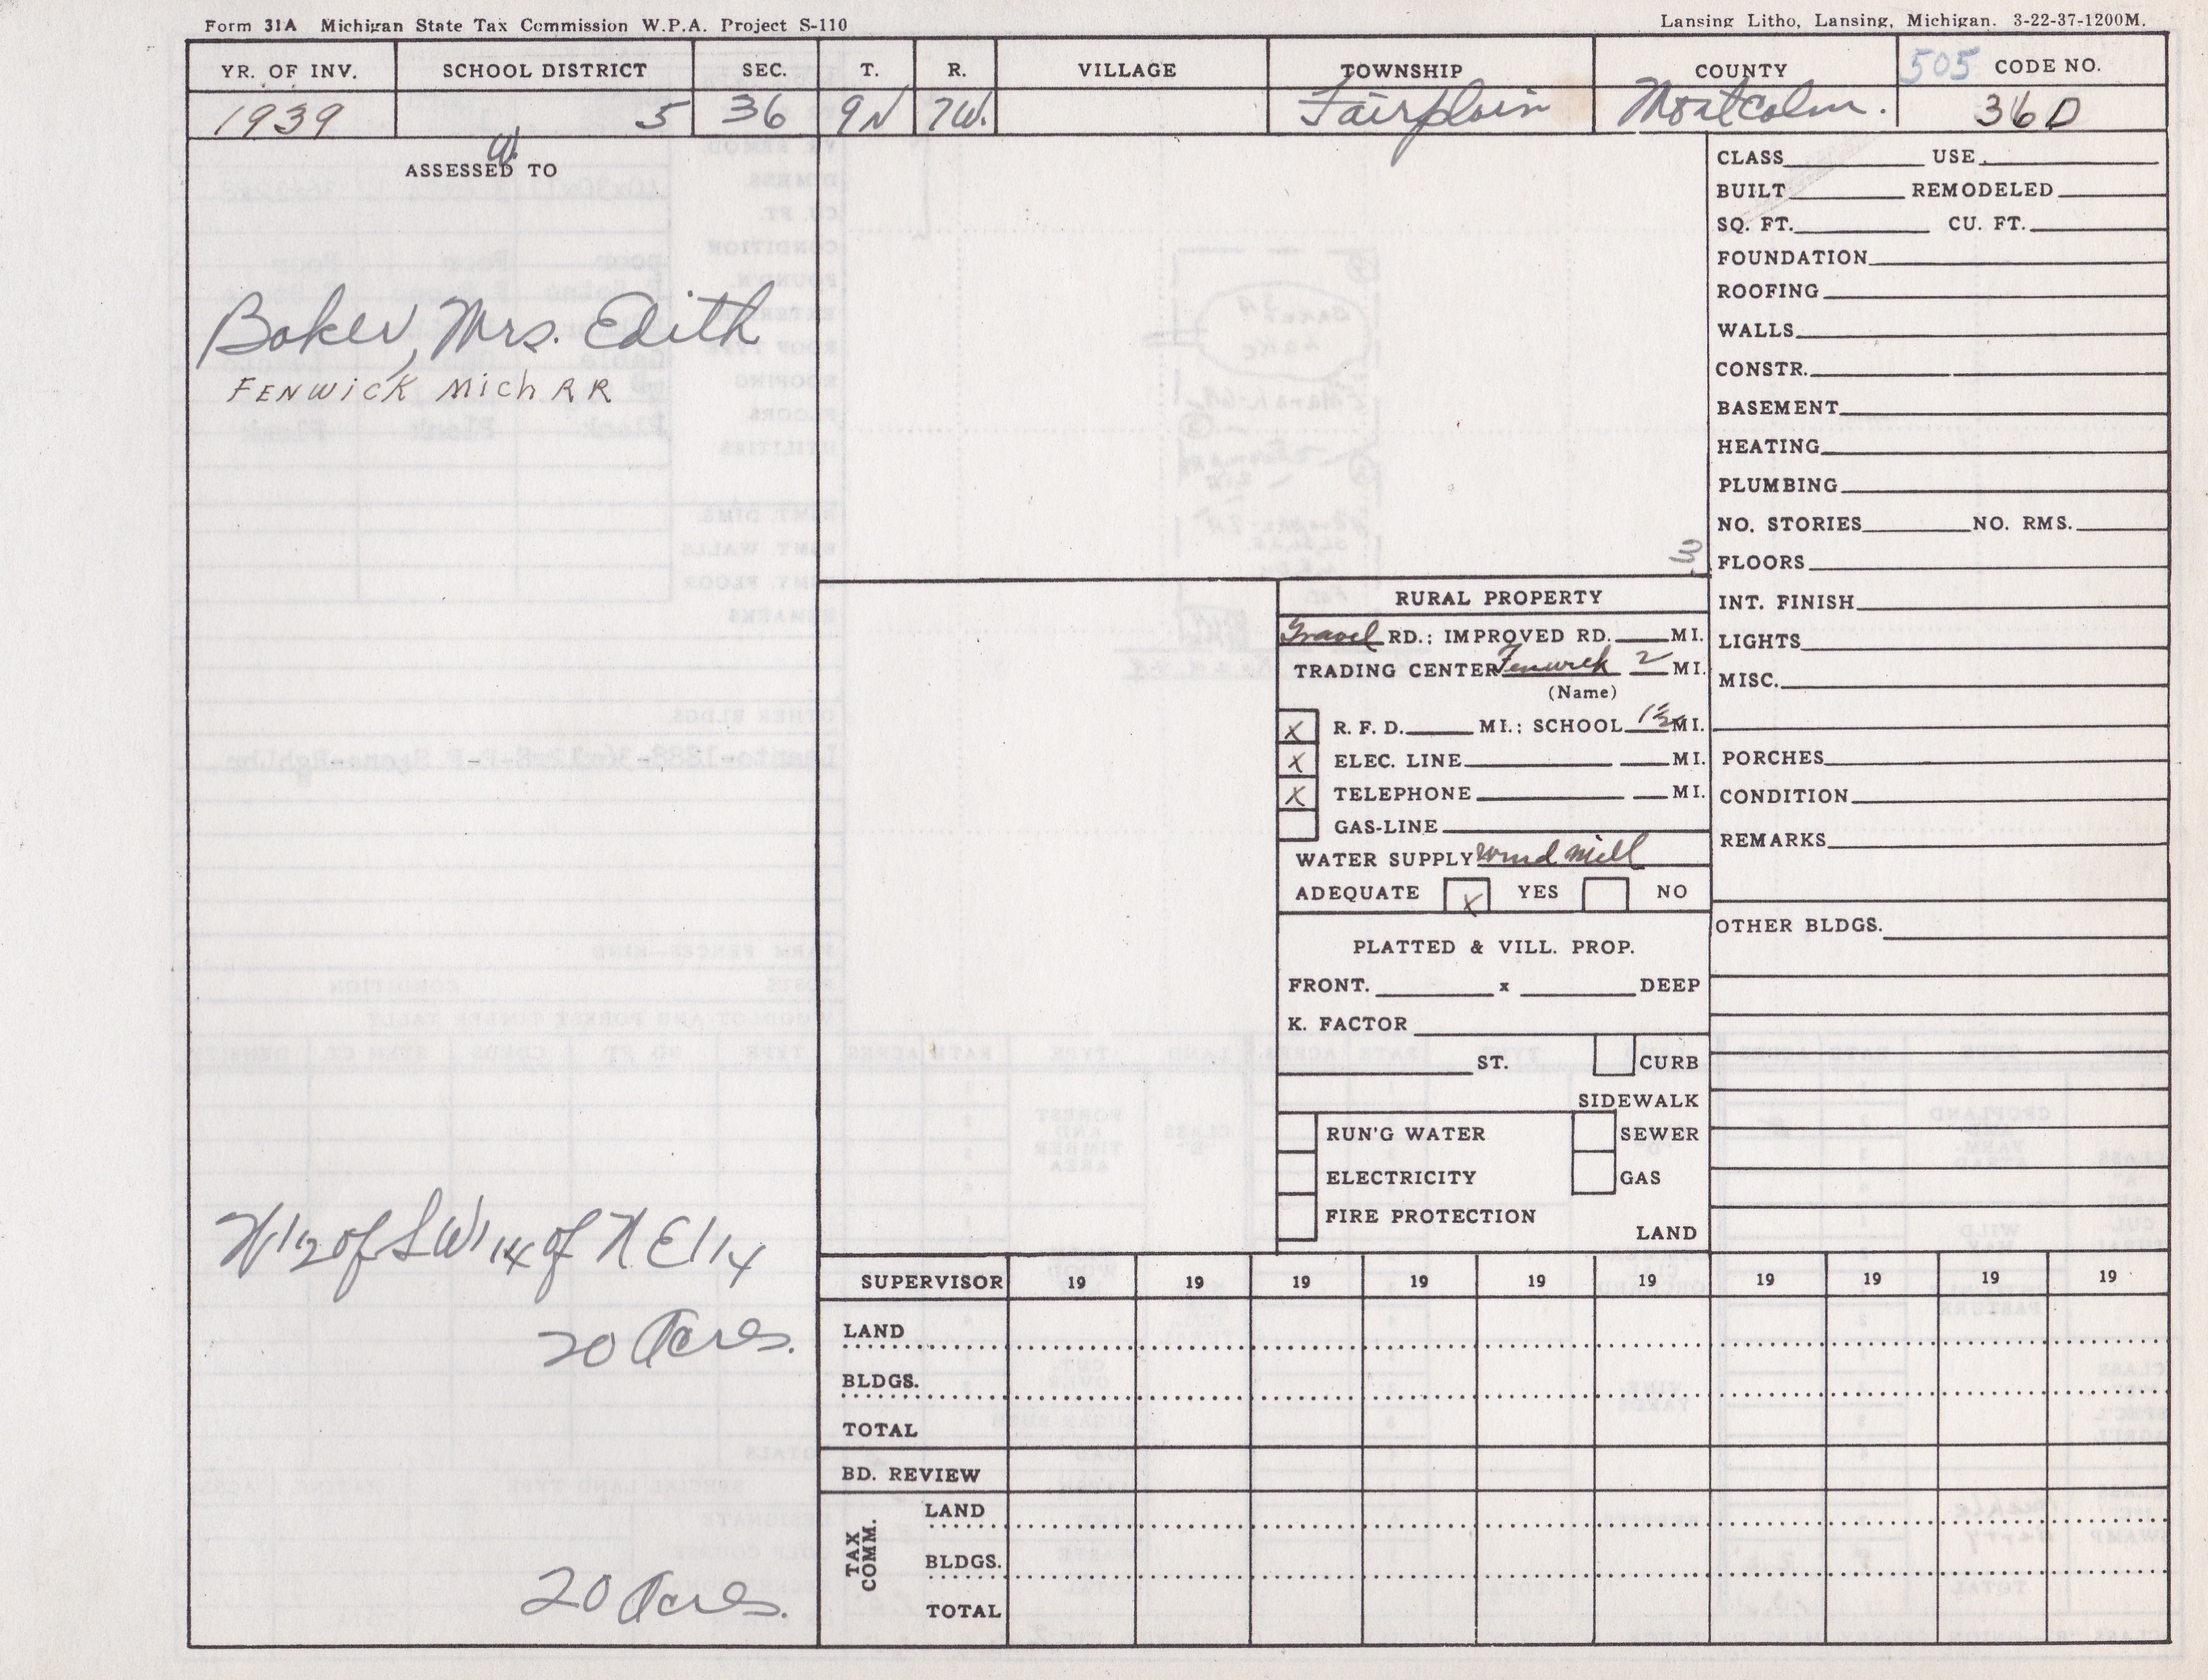 Form 31A Michigan State Tax Commission W.P.A. Project S-110
Lansing Litho, Lansing, Michigan. 3-22-37-1200M.
YR. OF INV. SCHOOL DISTRICT SEC. T. R. VILLAGE TOWNSHIP COUNTY 505 CODE NO.
1939 5 36 9N 7W. Fairplain Montcalm. 36D
W.
ASSESSED TO
Baker, Mrs. Edith
FENWICK Mich RR
N1/2 of SW1/4 of N.E1/4
20 Acres.
20 Acres.
RURAL PROPERTY
Gravel RD.; IMPROVED RD. MI.
TRADING CENTER Fenwick 2 MI.
(Name)
X R. F. D. MI.; SCHOOL 1 1/2 MI.
X ELEC. LINE MI.
X TELEPHONE MI.
GAS-LINE
WATER SUPPLY Wind Mill
ADEQUATE X YES NO
PLATTED & VILL. PROP.
FRONT. x DEEP
K. FACTOR
ST. CURB
SIDEWALK
RUN'G WATER SEWER
ELECTRICITY GAS
FIRE PROTECTION
LAND
CLASS USE
BUILT REMODELED
SQ. FT. CU. FT.
FOUNDATION
ROOFING
WALLS
CONSTR.
BASEMENT
HEATING
PLUMBING
NO. STORIES NO. RMS.
FLOORS
INT. FINISH
LIGHTS
MISC.
PORCHES
CONDITION
REMARKS
OTHER BLDGS.
SUPERVISOR 19 19 19 19 19 19 19 19 19 19
LAND
BLDGS.
TOTAL
BD. REVIEW
TAX COMM.
LAND
BLDGS.
TOTAL